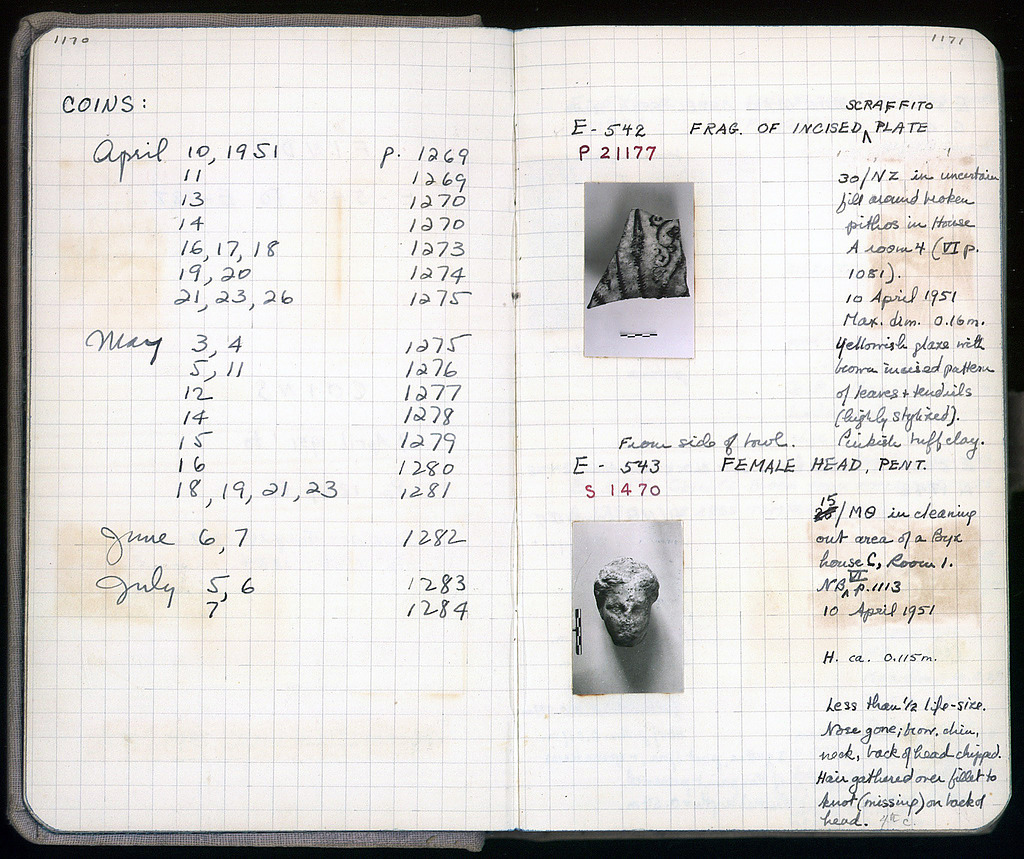 1170
COINS:
April 10, 1951 p. 1269
11 1269
13 1270
14 1270
16, 17, 18 1273
19, 20 1274
21, 23, 26 1275
May 3, 4 1275
5, 11 1276
12 1277
14 1278
15 1279
16 1280
18, 19, 21, 23 1281
June 6, 7 1282
July 5, 6 1283
7 1284
1171
SCRAFFITO
E - 542 FRAG. OF INCISED ^ PLATE
P 21177
30/NZ in uncertain
fill around broken
pithos in House
A room 4 (VI p.
1081).
10 April 1951
Max. dim. 0.16m.
Yellowish glaze with
brown incised pattern
of leaves + tendrils
(highly stylized).
Pinkish buff clay.
From side of bowl.
E - 543 FEMALE HEAD, PENT.
S 1470
15
/MΘ in cleaning
out area of a Byz
house C, Room 1.
VI
NB ^ p. 1113
10 April 1951
H. ca. 0.115m.
Less than 1/2 life-size.
Nose gone; brow, chin,
neck, back of head chipped.
Hair gathered over fillet to
knot (missing) on back of
head.